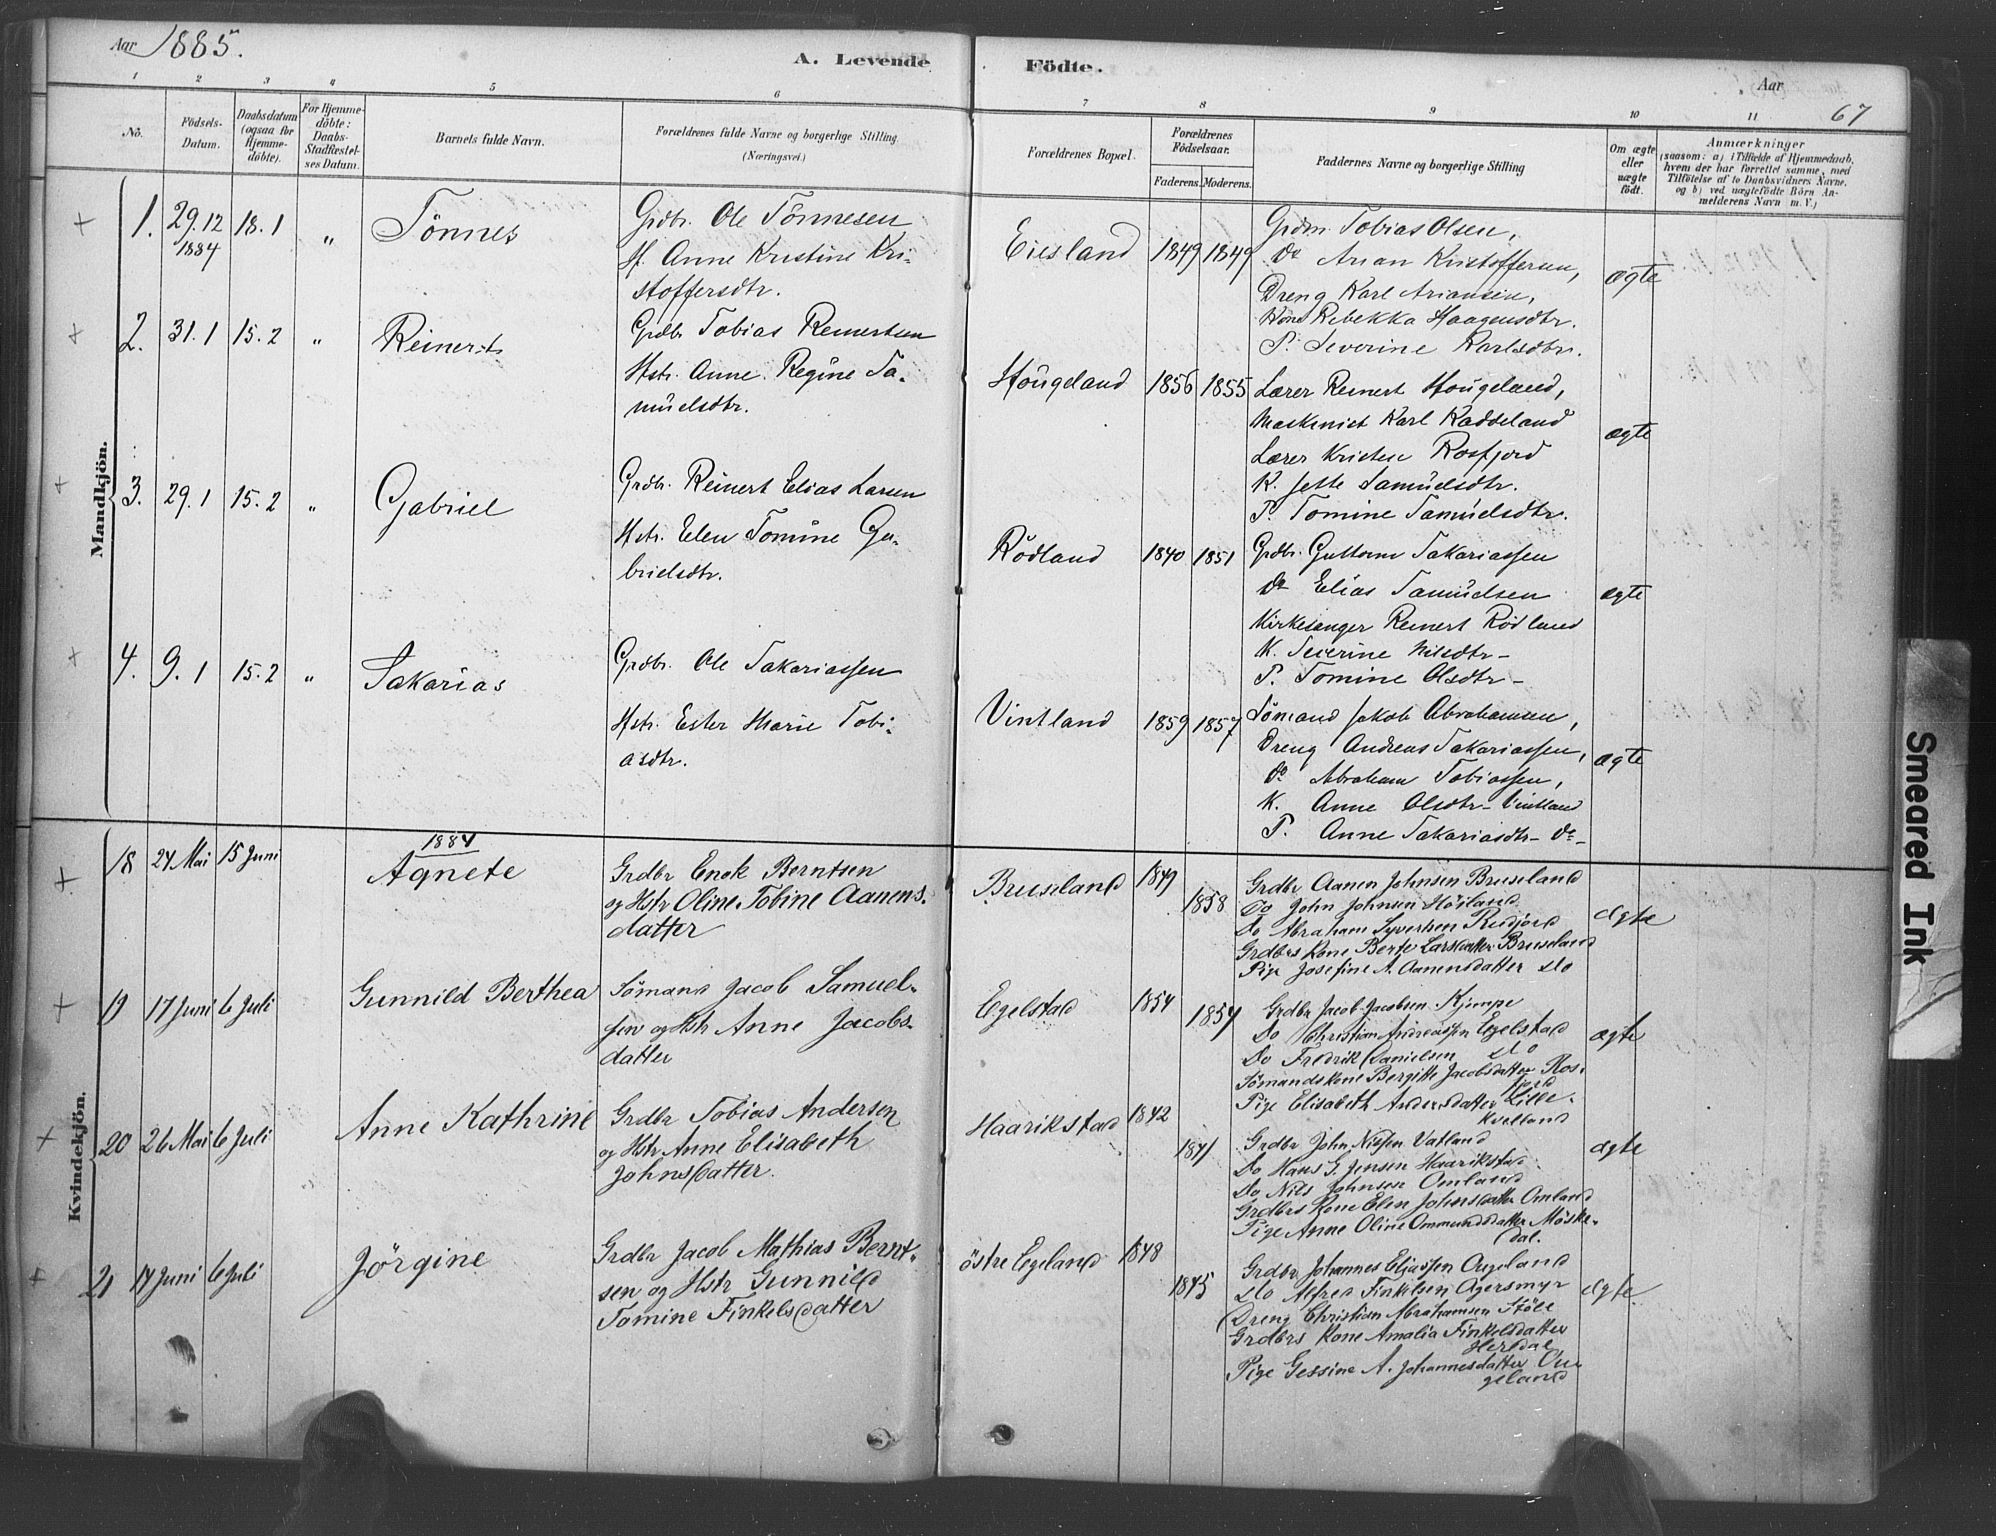 Aar 1885.
A. Levende Födte.
Aar
67
1 2 3 4 5 6 7 8 9 10 11
No.
Födsels-
Datum.
Daabsdatum
(ogsaa for
Hjemme-
døbte).
For Hjemme-
döbte:
Daabs-
Stadfæstel-
ses Datum.
Barnets fulde Navn.
Forældrenes fulde Navne og borgerlige Stilling.
(Næringsvei.)
Forældrenes Bopæl.
Forældrenes
Födselsaar.
Faderens. Moderens.
Faddernes Navne og borgerlige Stilling
Om ægte
eller
uægte
födt.
Anmærkninger
(saasom: a) i Tilfælde af Hjemmedaab,
hvem der har forrettet samme, med
Tilföielse af to Daabsvidners Navne,
og b) ved uægtefödte Börn An-
melderens Navn m. V.)
Mandkjön.
+ 1. 29.12 1884 18.1 „ Tönnes
Grdbr. Ole Tönnesen
H. Anne Kristine Kri-
stoffersdtr.
Eiesland 1849 1849
Grdm. Tobias Olsen,
Do Arian Kristoffersen,
Dreng Karl Ariansen,
Kone Rebekka Haagensdtr.
P. Severine Karlsdtr.
ægte
+ 2. 31.1 15.2 „ Reinert
Grdbr Tobias Reinertsen
Hstr. Anne Regine Sa-
muelsdtr.
Hougeland 1856 1855
Lærer Reinert Hougeland,
Maskinist Karl Kaddeland
Lærer Kristen Rosfjord
K. Jette Samuelsdtr.
P. Tomine Samuelsdtr.
ægte
+ 3. 29.1 15.2 „ Gabriel
Grdbr. Reinert Elias Larsen
Hstr. Elen Tomine Ga-
brielsdtr.
Rödland 1840 1851
Grdbr. Guttorm Sakariassen
Do Elias Samuelsen
Kirkesanger Reinert Rödland
K. Severine Nilsdtr-
P. Tomine Olsdtr-
ægte
+ 4. 9.1 15.2 „ Sakarias
Grdbr. Ole Sakariassen
Hstr. Ester Marie Tobi-
asdtr.
Vintland 1859 1857
Sömand Jakob Abrahamsen,
Dreng Andreas Sakariassen,
do Abraham Tobiassen,
K. Anne Olsdtr- Vintland
P. Anne Sakariasdtr- do-
ægte
Kvindekjön.
1884
+ 18 24 Mai 15 Juni Agnete
Grdbr Enok Berntsen
og Hstr Oline Tobine Aanens-
datter
Bruseland 1849 1858
Grdbr Aanen Johnsen Bruseland
Do John Johnsen Höiland
Do Abraham Syvertsen Rudjord
Grdbrs Kone Berte Larsdatter Bruseland
Pige Josefine A. Aanensdatter do
ægte
+ 19 17 Juni 6 Juli Gunnild Berthea
Sömand Jacob Samuel-
sen og Hstr Anne Jacobs-
datter
Egelstad 1854 1854
Grdbr Jacob Jacobsen Kjempe
Do Christian Andreassen Egelstad
Do Fredrik Danielsen do
Sömandskone Bergitte Jacobsdatter Ros-
fjord
Pige Elisabeth Andersdatter Lille-
kvelland
ægte
+ 20 26 Mai 6 Juli Anne Kathrine
Grdbr Tobias Andersen
og Hstr Anne Elisabeth
Johnsdatter
Haarikstad 1842 1841
Grdbr John Nilsen Vatland
Do Hans G. Jensen Haarikstad
Do Nils Johnsen Omland
Grdbrs Kone Elen Johnsdatter Omland
Pige Anne Oline Ommundsdatter Möske-
dal.
ægte
+ 21 14 Juni 6 Juli Jörgine
Grdbr Jacob Mathias Bernt-
sen og Hstr Gunnild
Tomine Finkelsdatter
östre Egeland 1848 1845
Grdbr Johannes Eliassen Augeland
do Alfred Finkelsen Agersmyr
Dreng Christian Abrahamsen Stöle
Grdbrs Kone Amalia Finkelsdatter
Herdal
Pige Gessine A. Johannesdatter Ou-
geland
ægte.
Smeared Ink